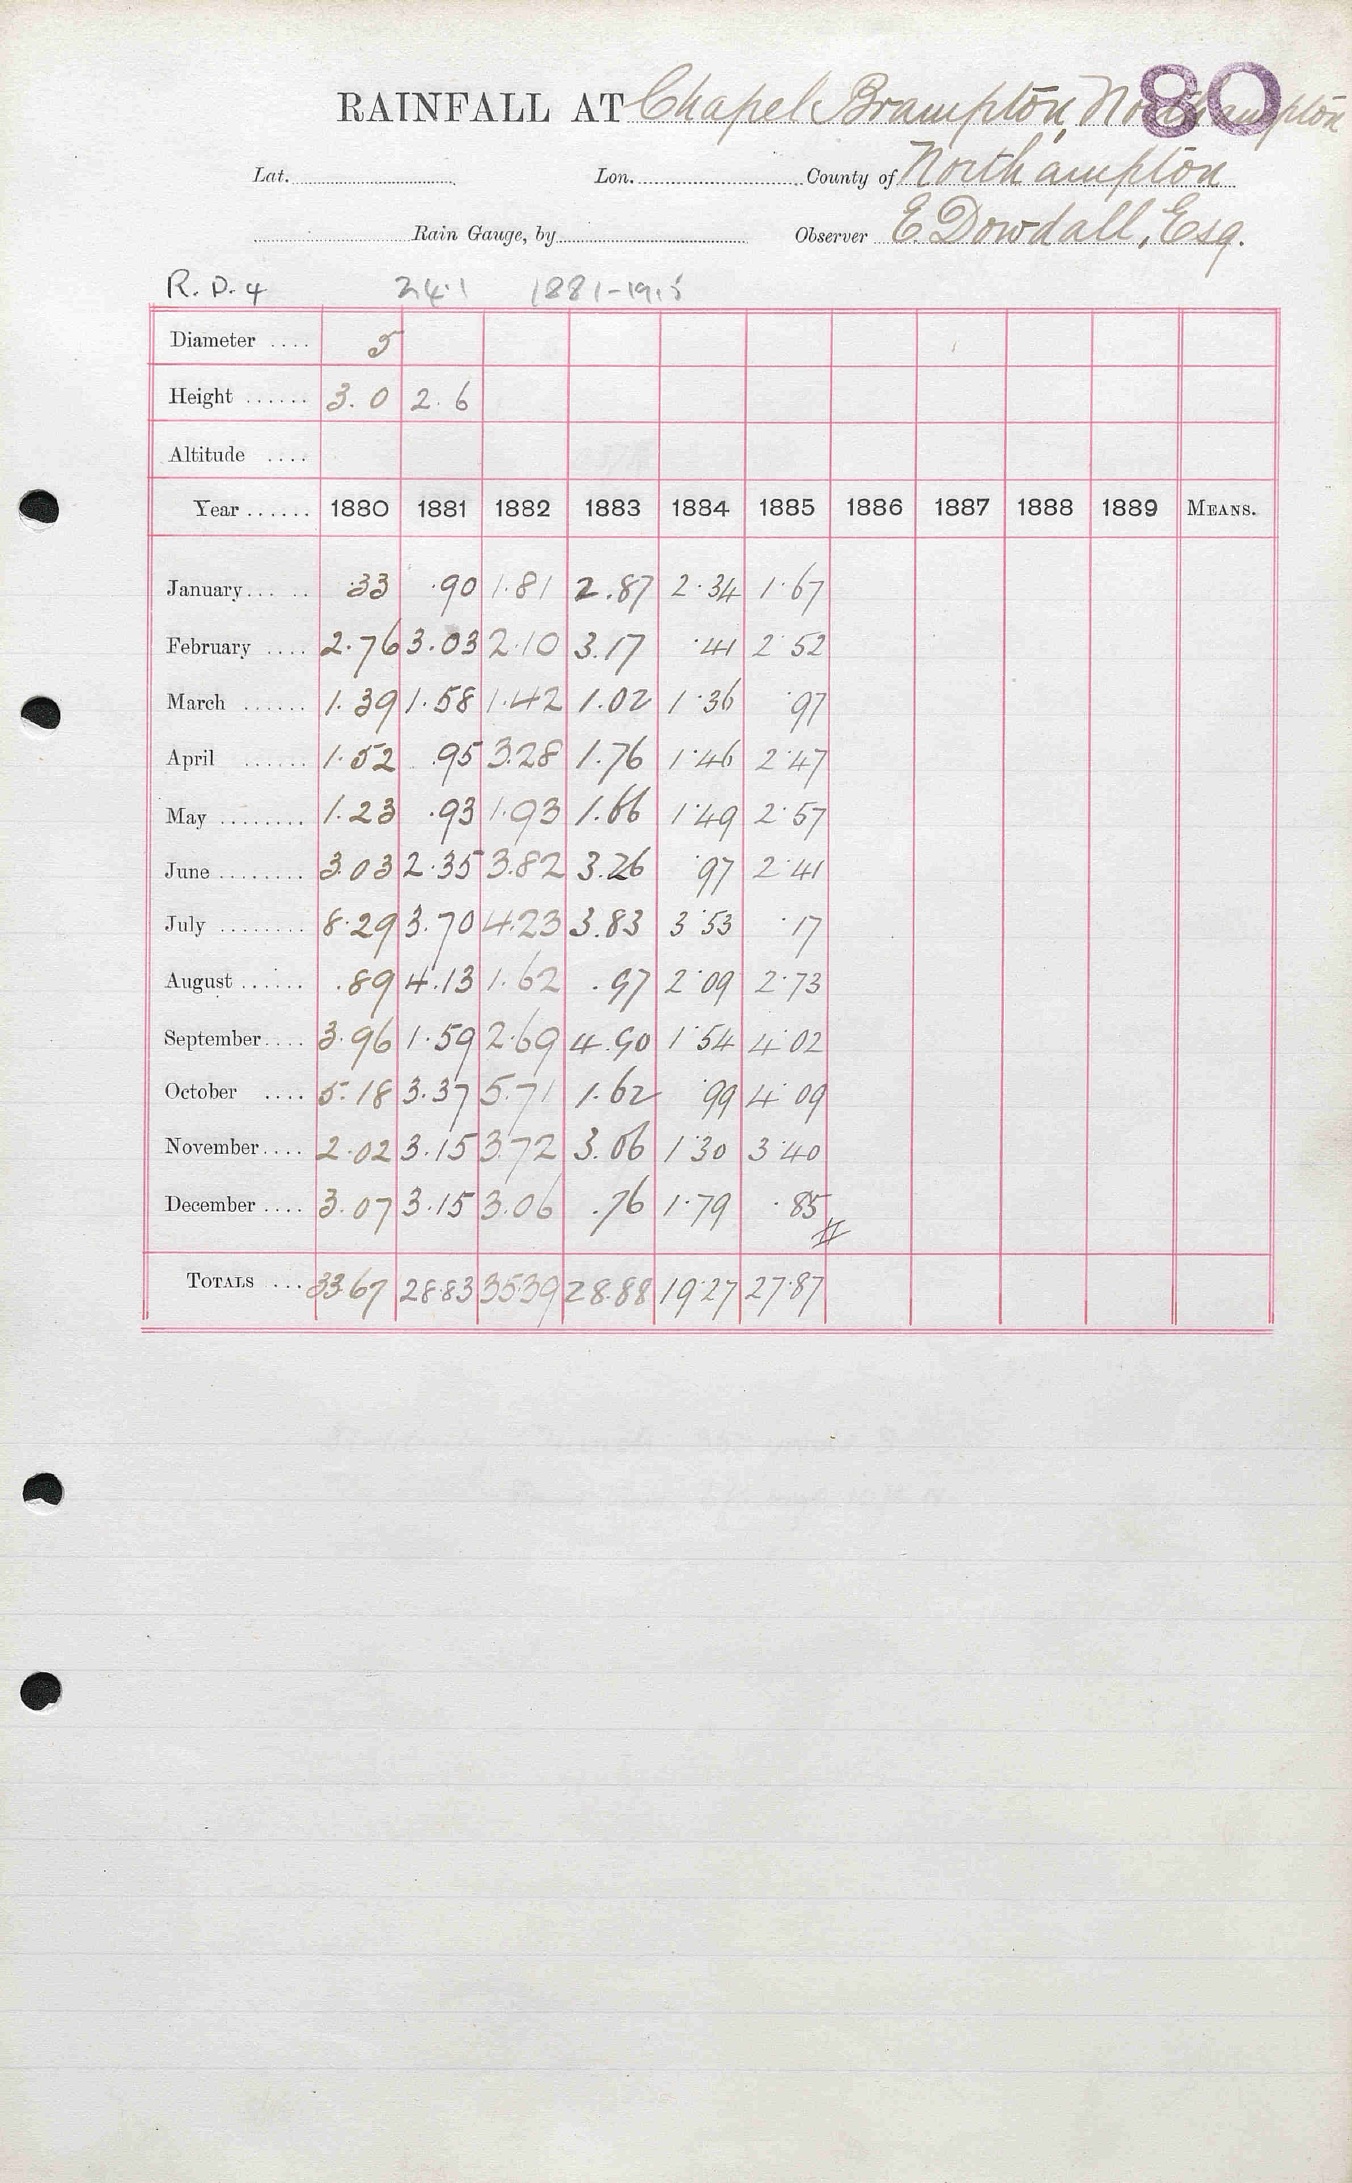 80
RAINFALL AT Chapel Brampton, Northampton
Lat. Lon. County of Northampton
Rain Gauge, by Observer E. Dowdall, Esq.
R.D.4 24.1 1881-1915
Diameter .... 5
Height ...... 3.0 2.6
Altitude ....
Year ...... 1880 1881 1882 1883 1884 1885 1886 1887 1888 1889 MEANS.
January ... .. .33 .90 1.81 2.87 2.34 1.67
February .... 2.76 3.03 2.10 3.17 .41 2.52
March ...... 1.39 1.58 1.42 1.02 1.36 .97
April ...... 1.52 .95 3.28 1.76 1.46 2.47
May ........ 1.23 .93 1.93 1.66 1.49 2.57
June ........ 3.03 2.35 3.82 3.26 .97 2.41
July ........ 8.29 3.70 4.23 3.83 3.53 .17
August ...... .89 4.13 1.62 .97 2.09 2.73
September .... 3.96 1.59 2.69 4.90 1.54 4.02
October .... 5.18 3.37 5.71 1.62 .99 4.09
November .... 2.02 3.15 3.72 3.06 1.30 3.40
December .... 3.07 3.15 3.06 .76 1.79 .85
TOTALS ... 33.67 28.83 35.39 28.88 19.27 27.87